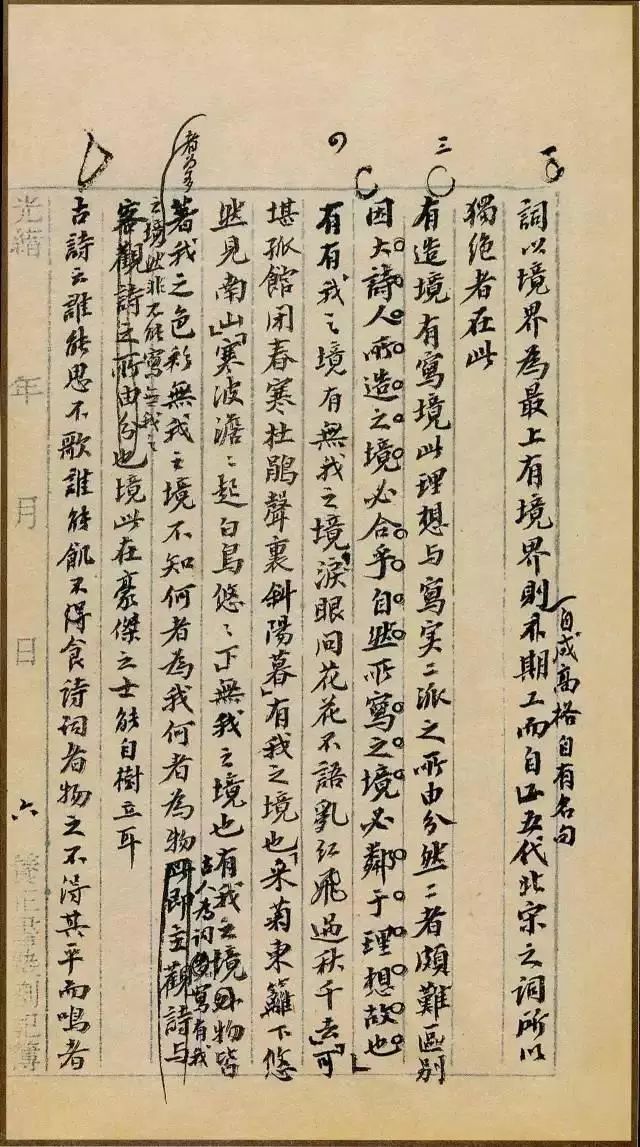 詞以境界為最上有境界則不期工而自工五代北宋之詞所以
自成高格自有名句
獨絕者在此
三
有造境有寫境此理想与寫实二派之所由分然二者頗難區別
因大詩人所造之境必合乎自然所寫之境必鄰于理想故也
有有我之境有無我之境「淚眼問花花不語乱红飛過秋千去」「可
堪孤館闭春寒杜鵑聲裏斜陽暮」有我之境也「采菊東籬下悠
然見南山」「寒波澹〻起白鳥悠〻下」無我之境也有我之境物皆
著我之色彩無我之境不知何者為我何者為物此即主觀詩与
古人為詞寫有我
之境
者為多
然非不能寫無我之
客觀詩之所由分也境此在豪傑之士能自樹立耳
古詩云誰能思不歌誰能飢不得食詩詞者物之不得其平而鳴者
光緒 年 月 日 六